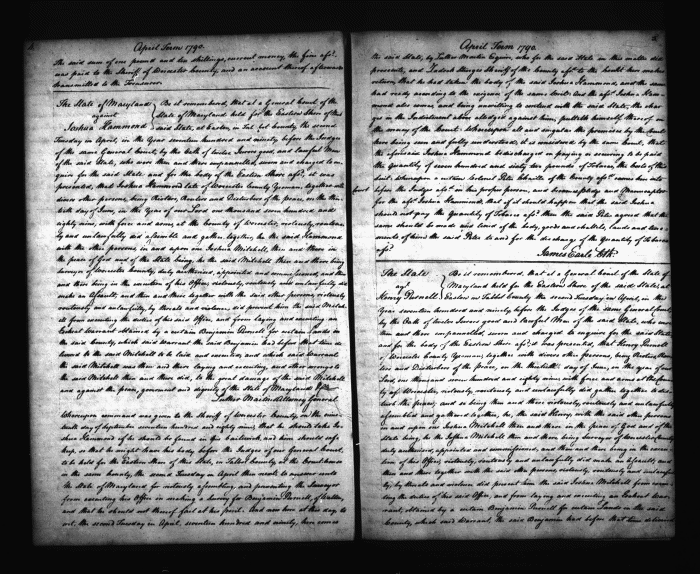 April Term 1790.
The said sum of one pound and ten shillings, current money, the fine afsd.
was paid to the Sheriff of Worcester County, and an account thereof afterwards
transmitted to the Treasurer.
The State of Maryland
against
Joshua Hammond
Be it remembered, that at a General Court of the
State of Maryland held for the Eastern Shore of the
said State, at Easton, in Talbot County, the second
Tuesday in April, in the Year seventeen hundred and ninety before the Judges
of the same General Court, by the Oath of twelve Jurors, good and lawful Men
of the said State, who were then and there impannelled, sworn and charged to en-
quire for the said State and for the body of the Eastern Shore afsd., it was
presented, that Joshua Hammond late of Worcester County Yeoman, together with
divers other persons, being Rioters, Routers and Disturbers of the peace, on the thir-
tieth day of June, in the Year of our Lord one thousand seven hundred and
eighty nine, with force and arms, at the County of Worcester, riotously, routous-
ly and unlawfully did assemble and gather together, he the said Hammond
with the other persons, in and upon Joshua Mitchell, then and there in
the peace of God and of the State being, he the said Mitchell then and there being
Surveyor of Worcester County, duly authorised, appointed and commissioned, and then
and there being in the execution of his Office, riotously, routously and unlawfully did
make an Assault, and then and there together with the said other persons, riotously
routously and unlawfully, by threats and violence, did prevent him the said Mitch-
ell from executing the duties of his said Office, and from laying and executing an
Escheat Warrant obtained by a certain Benjamin Purnell for certain Lands in
the said County, which said Warrant the said Benjamin had before that time de-
livered to the said Mitchell to be laid and executed, and which said Warrant
the said Mitchell was then and there laying and executing, and other wrongs to
the said Mitchell then and there did, to the great damage of the said Mitchell
and against the peace, government and dignity of the State of Maryland &c.
Luther Martin Attorney General.
Whereupon command was given to the Sheriff of Worcester County, on the nine-
teenth day of September seventeen hundred and eighty nine, that he should take Jo-
shua Hammond if he should be found in his bailiwick, and him should safe
keep, so that he might have his body before the Judges of our General Court,
to be held for the Eastern Shore of this State, in Talbot County, at the Court house
in the same County, the second Tuesday in April then next, to answer unto
the State of Maryland for riotously assembling, and preventing the Surveyor
from executing his Office in making a Survey for Benjamin Purnell, of
and that he should not thereof fail at his peril. And now here at this day, to
wit, the second Tuesday in April seventeen hundred and ninety, here comes
April Term 1790.
the said State, by Luther Martin Esquire, who for the said State in this matter doth
prosecute, and Sheriff of the County afsd. to the Court here makes
return, that he hath taken the body of the said Joshua Hammond, and the same
had ready according to the exigence of the same Writ. And the afsd. Joshua Ham-
mond also comes, and being unwilling to contend with the said State, the char-
ges in the Indictment above alledged against him, putteth himself thereof on
the mercy of the Court. Whereupon all and singular the premises by the Court
here being seen and fully understood, it is considered by the same Court, that
the aforesaid Joshua Hammond be discharged on paying or securing to be paid
the Quantity of seven hundred and sixty two pounds of Tobacco, the costs of this
suit. Whereupon a certain Colonel Peter Chaille of the County afsd. comes here into
Court before the Judges afsd. in his proper person, and becomes pledge and Manucaptor
for the afsd. Joshua Hammond, that if it should happen that the said Joshua
should not pay the Quantity of Tobacco afsd. then the said Peter agreed that the
same should be made and levied of the body, goods and chattels, lands and tene-
ments of him the said Peter to and for the discharge of the Quantity of Tobacco
afsd.
James Earle Clk.
The State
agt.
Henry Purnell
Be it remembered, that at a General Court of the State of
Maryland held for the Eastern Shore of the said State, at
Easton in Talbot County the second Tuesday in April, in the
Year seventeen hundred and ninety, before the Judges of the same General Court,
by the Oath of twelve Jurors good and lawful Men of the said State, who were
then and there impannelled, sworn and charged to enquire for the said State
and for the body of the Eastern Shore afsd. it was presented, that Henry Purnell
of Worcester County Yeoman, together with divers other persons, being Rioters, Rou-
ters and Disturbers of the peace, on the thirtieth day of June, in the year of our
Lord one thousand seven hundred and eighty nine with force and arms at the County
of Worcester, riotously, routously and unlawfully did gather together to dis-
turb the peace; and so being then and there riotously, routously and unlawfully
assembled and gathered together, he, the said Henry, with the said other persons
in and upon one Joshua Mitchell then and there in the peace of God and of the
State being, he the Joshua Mitchell then and there being Surveyor of Worcester County
duly authorised, appointed and commissioned, and then and there being in the execu-
tion of his Office, riotously, routously and unlawfully did make an Assault, and
then and there, together with the said other persons, riotously, routously and unlawful-
ly, by threats and violence did prevent him the said Joshua Mitchell from execu-
ting the duties of his said Office, and from laying and executing an Escheat War-
rant, obtained by a certain Benjamin Purnell for certain Lands in the said
County, which said Warrant, the said Benjamin had before that time delivered